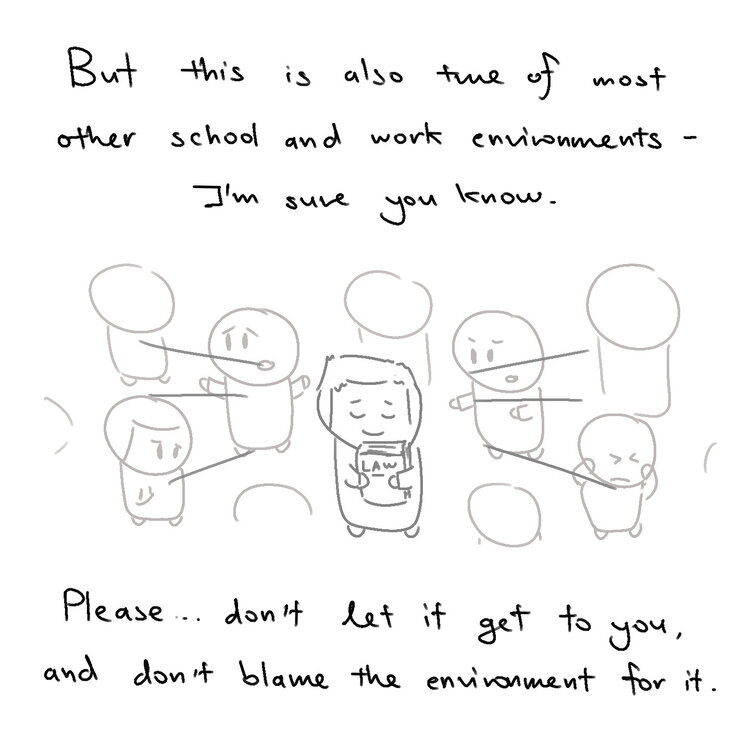 But this is also true of most
other school and work environments -
I'm sure you know.
LAW
Please... don't let it get to you,
and don't blame the environment for it.